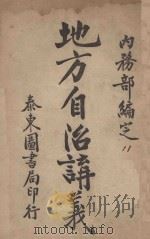 內務部編定
地方自治講義
泰東圖書局印行